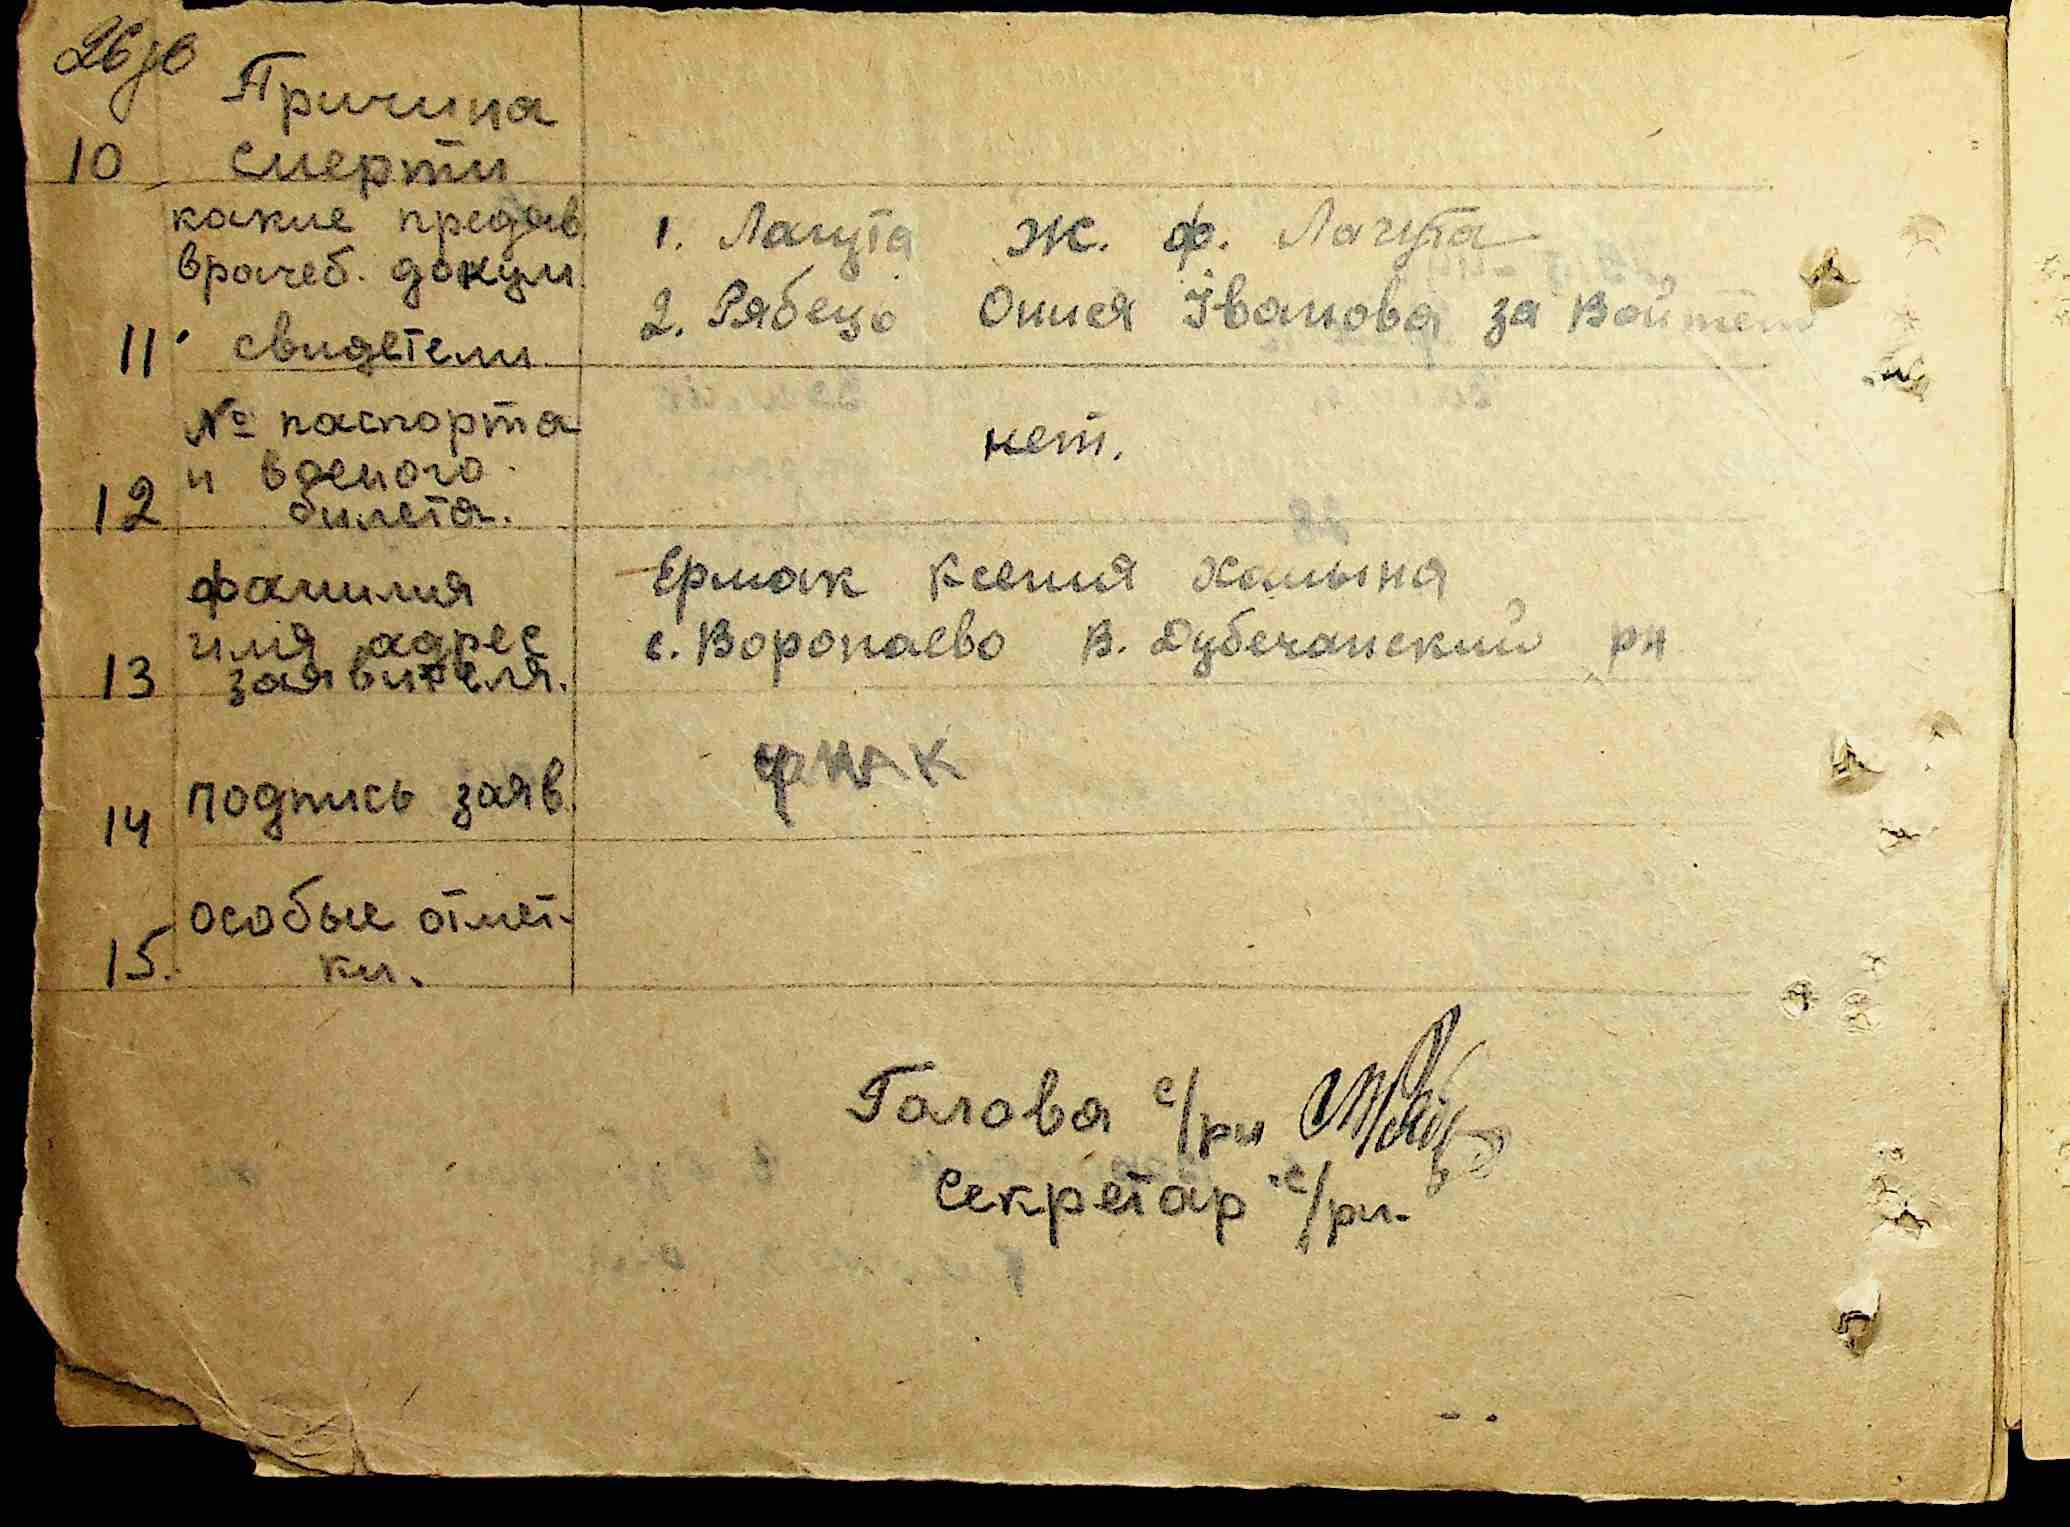 26 зв
Причина
10 смерти
какие предяв
врачеб. докум.
11 свидетели
1. Лагута Ж. Ф. Лагута
2. Рябецо Онися Іванова за
№ паспорта
и военого
12 билета.
нет.
фамилия
имя адрес
13 заявителя.
Ермак Ксения Хомына
с. Воропаево В. Дубечанский рн
14 подпись заяв.
особые отмет-
15. ки.
Голова с/ри
Секретар с/ри.